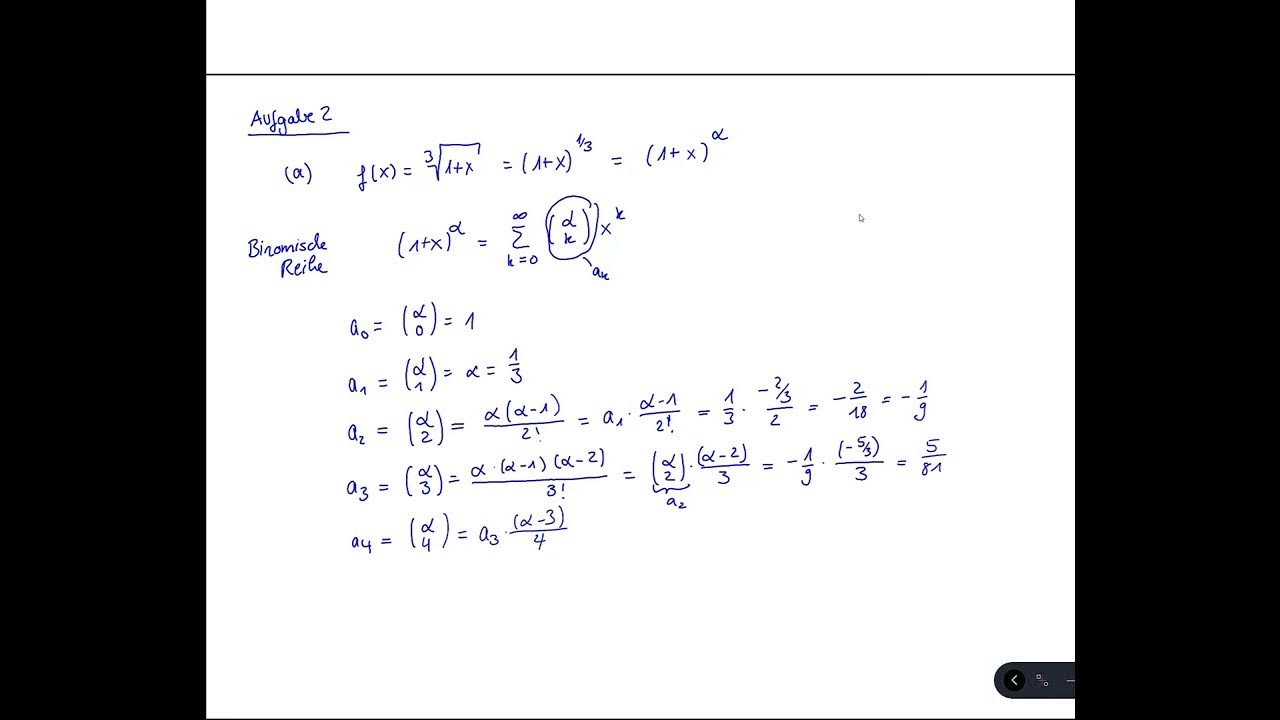 Aufgabe 2
(a) f(x) = ∛(1+x) = (1+x)^(1/3) = (1+x)^α
Binomische Reihe (1+x)^α = ∑_{k=0}^{∞} (α k) x^k
a_k
a₀ = (α 0) = 1
a₁ = (α 1) = α = 1/3
a₂ = (α 2) = α(α-1)/2! = a₁ · (α-1)/2! = 1/3 · (-2/3)/2 = -2/18 = -1/9
a₃ = (α 3) = α·(α-1)(α-2)/3! = (α 2) · (α-2)/3 = -1/9 · (-5/3)/3 = 5/81
a₂
a₄ = (α 4) = a₃ · (α-3)/4